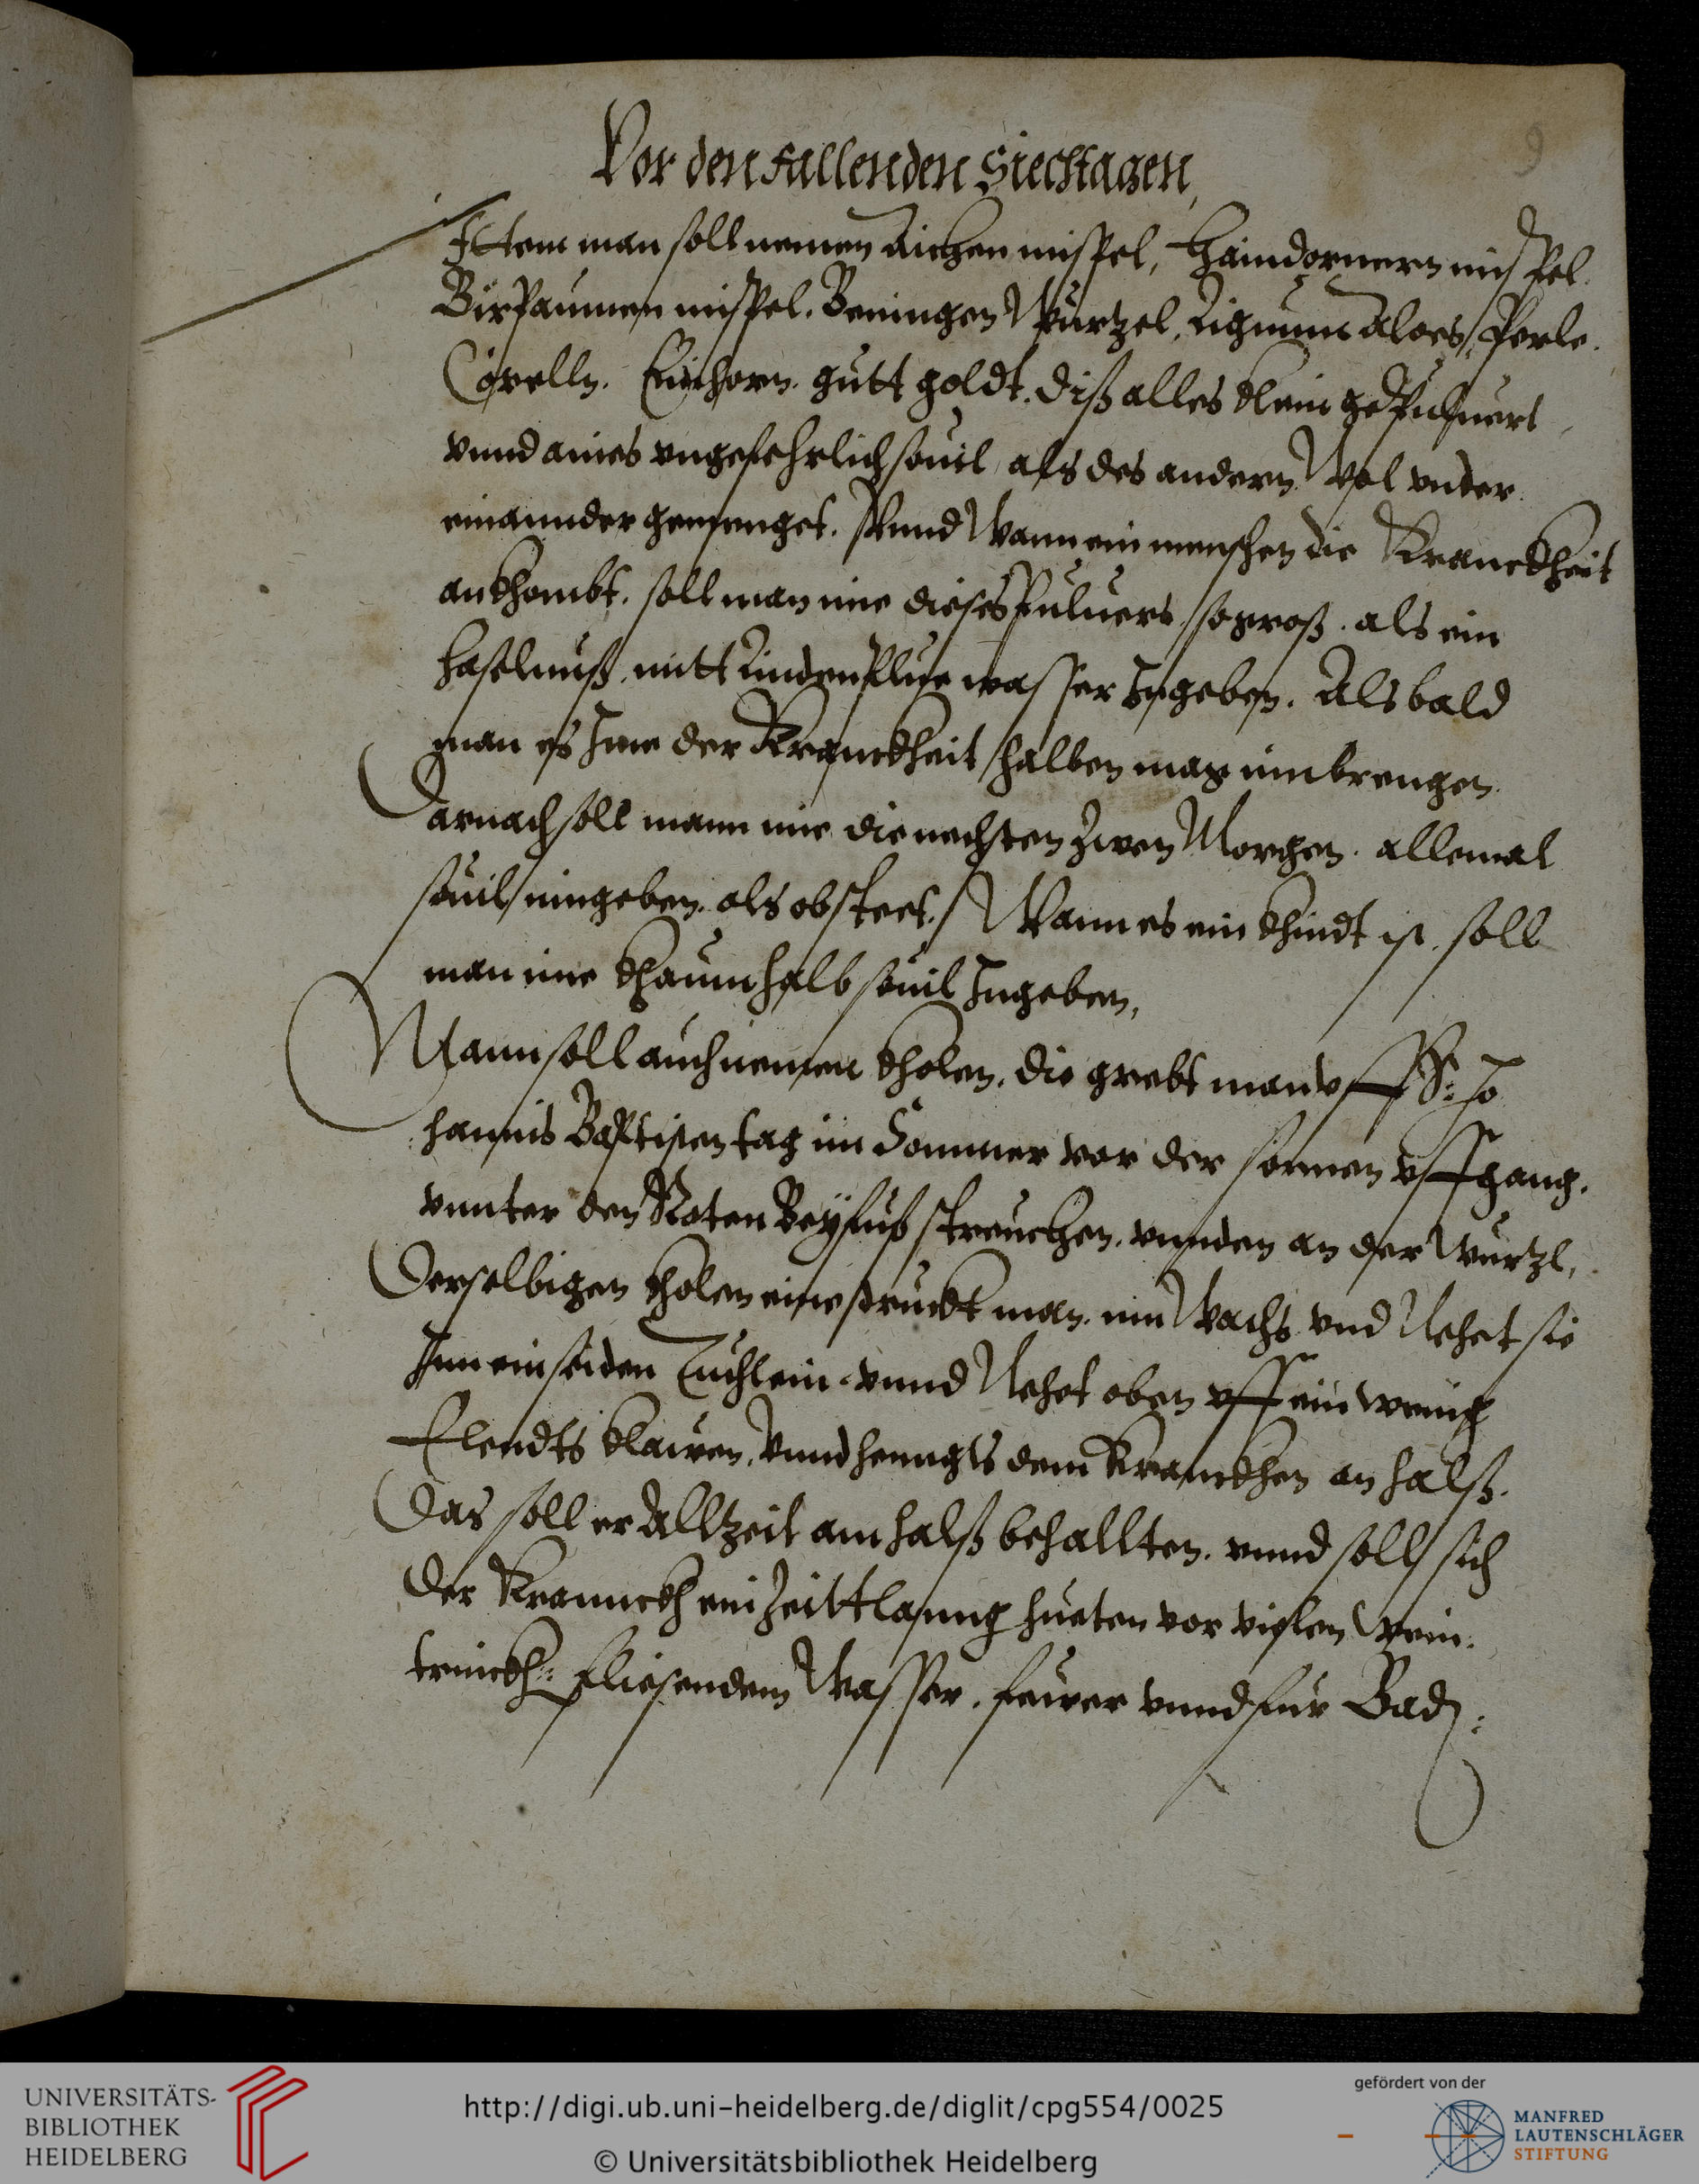 9
Vor den fallenden Siechtagen,
Ittem man soll nemen Aichen mispel, Haindornern mispel.
Birpaumen mispel. Beningen Wurtzel, Lignum Aloes, Perle.
Corelln. Einhorn. gutt goldt. diß alles klein gepuluert
vnnd aines vngefehrlich souil als des andern Wol vnder
einannder gemenget. Vnnd Wann ein menschen die Kranckheit
ankhombt. soll man ime dieses puluers so groß. als ein
haselnuß. mitt Lindenplue wasser Ingeben. Als bald
man es Ime der Kranckheit halben mag einbrengen.
Darnach soll mann ime die nechsten zwen Morgen. allemal
souil eingeben. als obsteet. Wann es ein khindt ist. soll
man ime khaum halb souil Ingeben,
Mann soll auch nemen kholen. die grebt man vff S: Jo
hannis Baptisten tag im Sommer vor der sonnen vffgang.
vnnter den Roten Beyfuß streuchen. vnnden an der Wurtzl,
Derselbigen kholen eine struckt man. inn Wachs vnd Nehet sie
Inn ein seiden Tuchlein. vnnd Nehet oben vff ein wenig
Elendts klawen. Vnnd henngts dem Kranckhen an halß.
Das soll er Alltzeit am halß behallten. vnnd soll sich
der Krannckh ein Zeittlanng hueten vor vielen Wein
trinckh: fliesendem Wasser. fewer vnnd für Bad:
UNIVERSITÄTS-
BIBLIOTHEK
HEIDELBERG
http://digi.ub.uni-heidelberg.de/diglit/cpg554/0025
© Universitätsbibliothek Heidelberg
gefördert von der
MANFRED
LAUTENSCHLÄGER
STIFTUNG